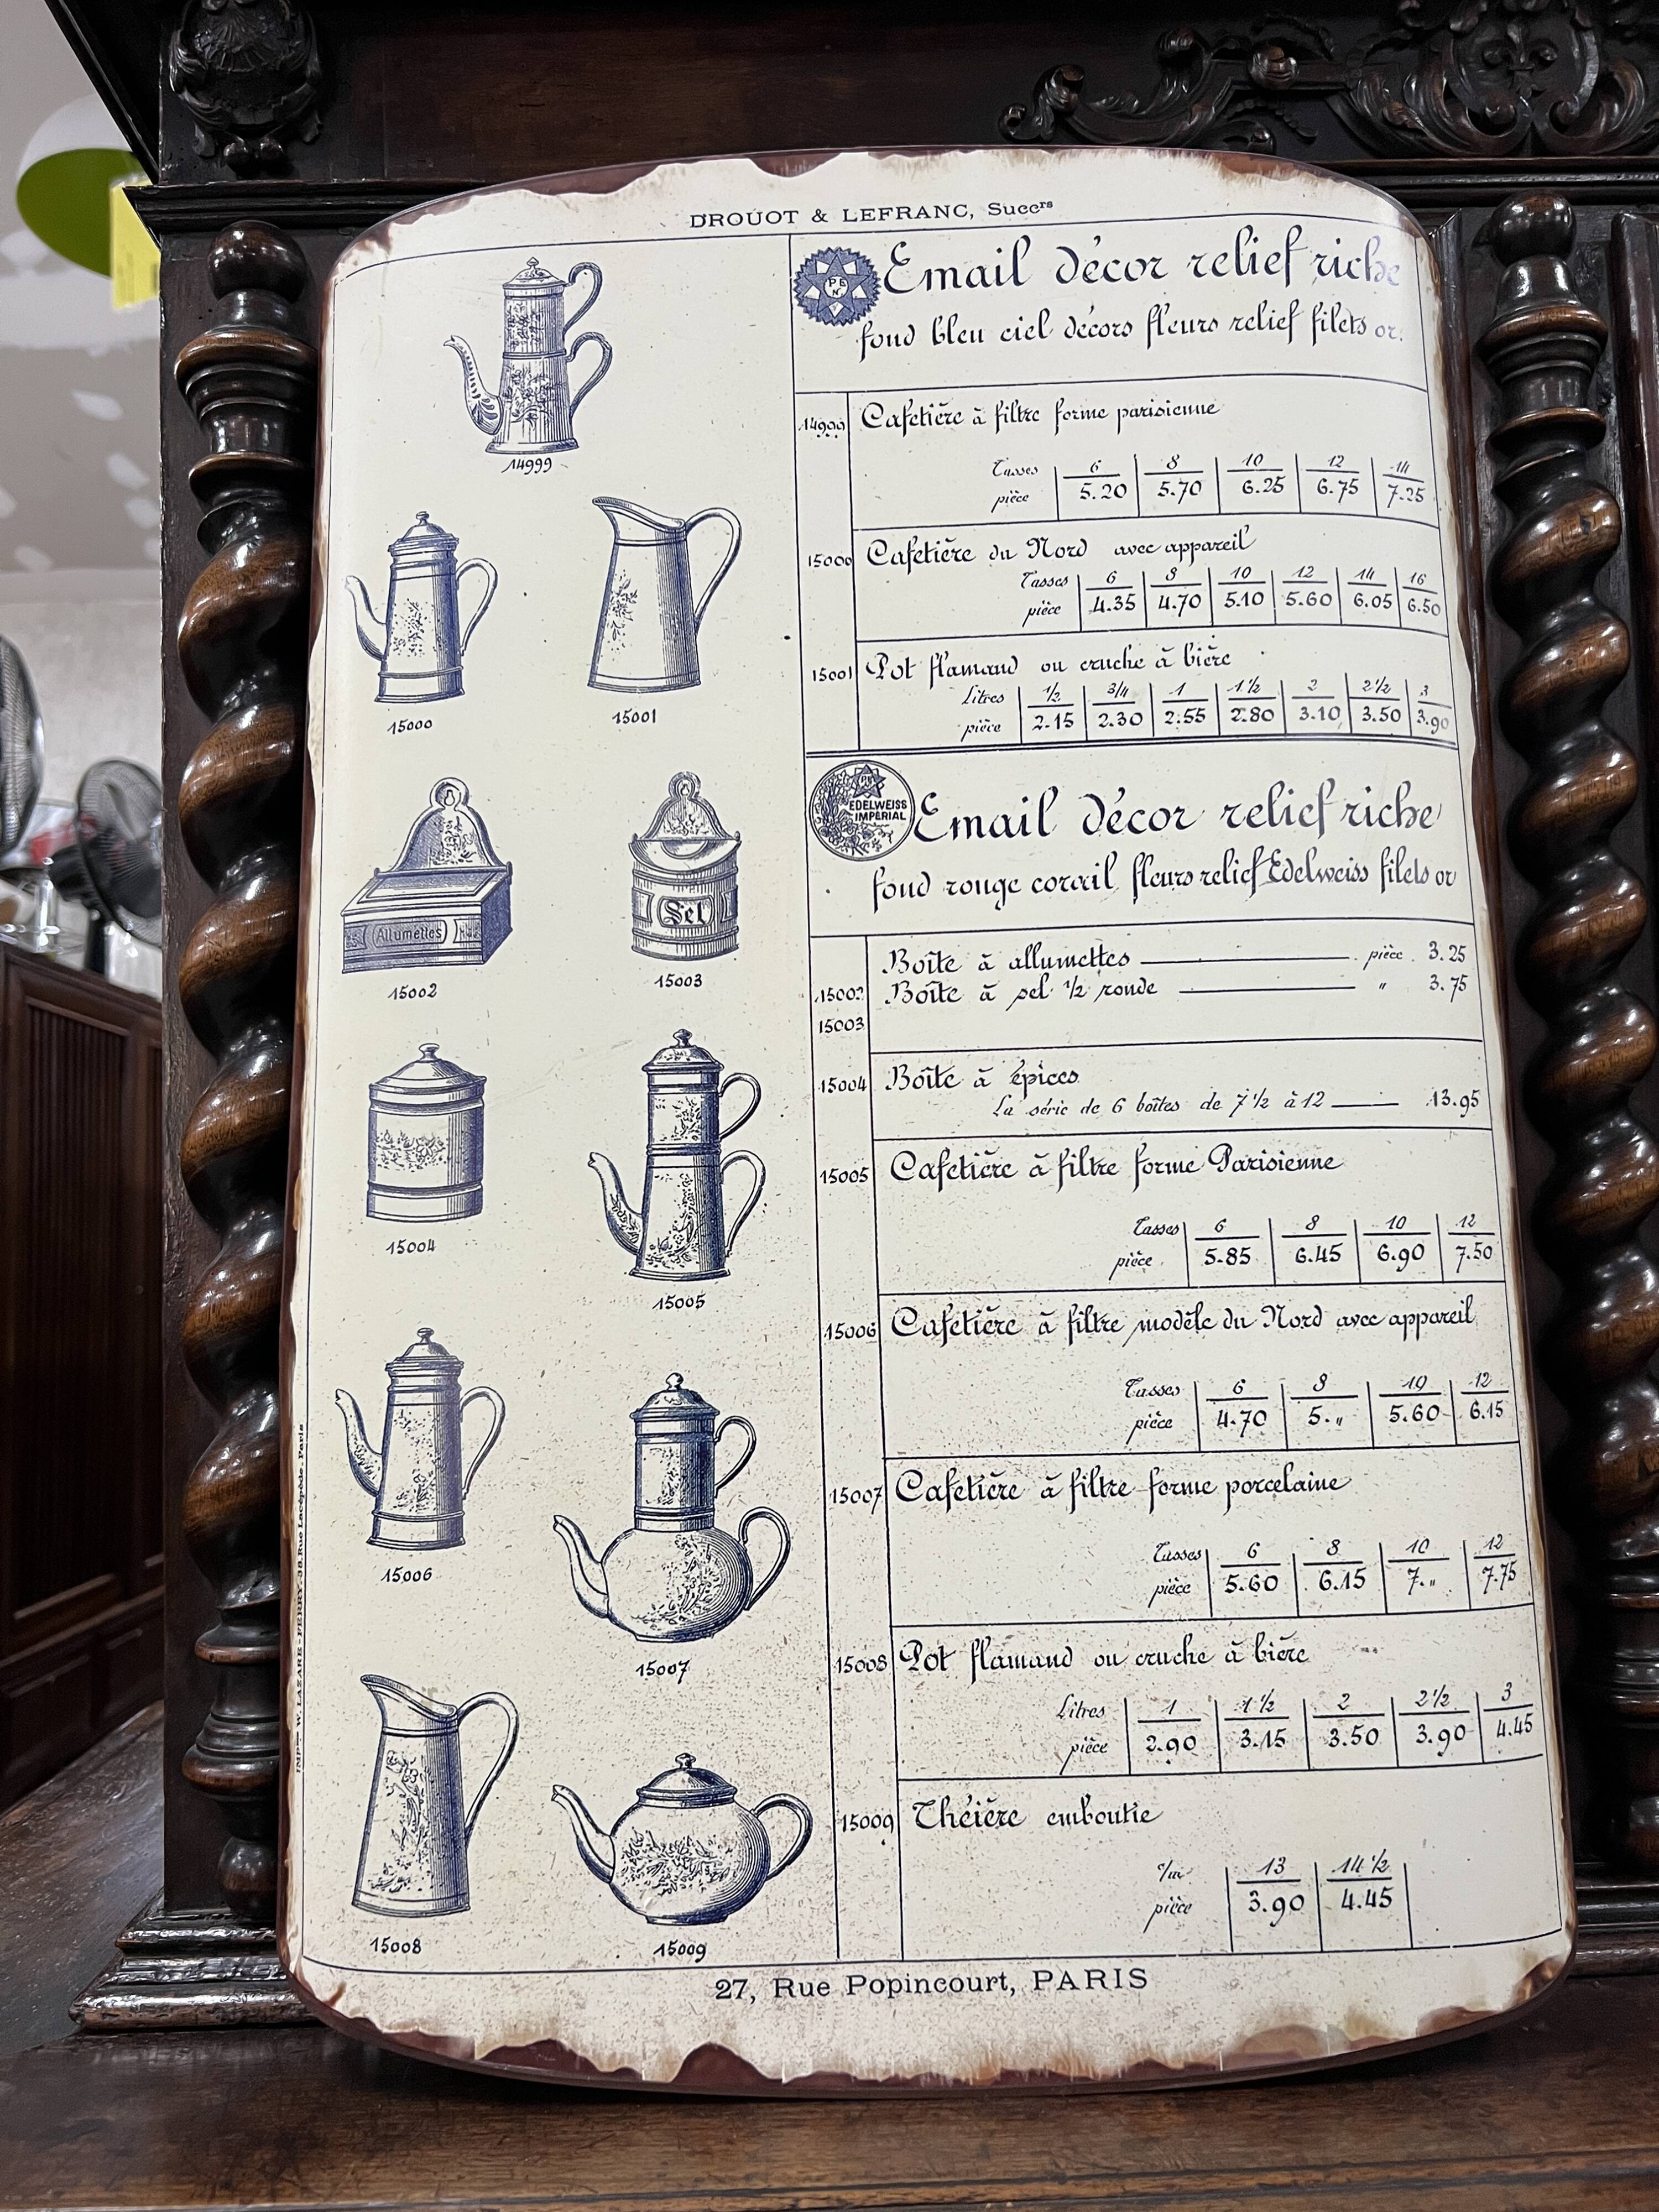 DROUOT & LEFRANC, Succrs
14999
15000
15001
Allumettes
Sel
15002
15003
15004
15005
15006
15007
15008
15009
IMPie W. LAZARE-FERRY. 38. Rue Lacépède. Paris
Email décor relief riche
fond bleu ciel décors fleurs relief filets or.
14999 Cafetière à filtre forme parisienne
Tasses 6 8 10 12 14
pièce 5.20 5.70 6.25 6.75 7.25
15000 Cafetière du Nord avec appareil
Tasses 6 8 10 12 14 16
pièce 4.35 4.70 5.10 5.60 6.05 6.50
15001 Pot flamand ou cruche à bière
Litres 1/2 3/4 1 1 1/2 2 2 1/2 3
pièce 2.15 2.30 2.55 2.80 3.10 3.50 3.90
EDELWEISS
IMPERIAL
Email décor relief riche
fond rouge corail fleurs relief Edelweiss filets or
Boîte à allumettes pièce 3.25
15002 Boîte à sel 1/2 ronde " 3.75
15003
15004 Boîte à épices
La série de 6 boîtes de 7 1/2 à 12 13.95
15005 Cafetière à filtre forme Parisienne
Tasses 6 8 10 12
pièce 5.85 6.45 6.90 7.50
15006 Cafetière à filtre modèle du Nord avec appareil
Tasses 6 8 10 12
pièce 4.70 5. „ 5.60 6.15
15007 Cafetière à filtre forme porcelaine
Tasses 6 8 10 12
pièce 5.60 6.15 7. „ 7.75
15008 Pot flamand ou cruche à bière
Litres 1 1 1/2 2 2 1/2 3
pièce 2.90 3.15 3.50 3.90 4.45
15009 Théière emboutie
c/m 13 14 1/2
pièce 3.90 4.45
27, Rue Popincourt, PARIS